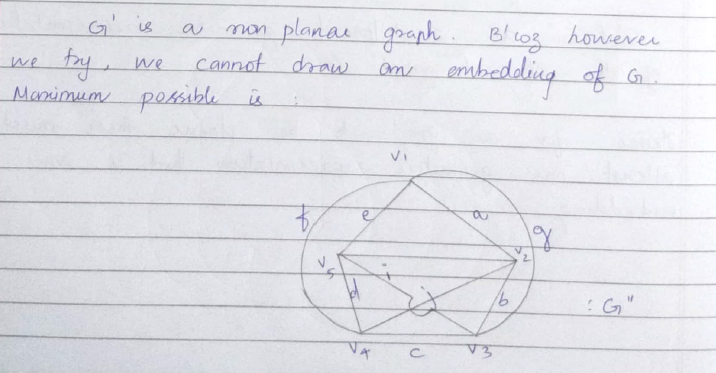 G' is a non planar graph. B'coz however
we try, we cannot draw an embedding of G.
Maximum possible is :
V1
f e a g
V5 i V2
d j b : G"
V4 c V3